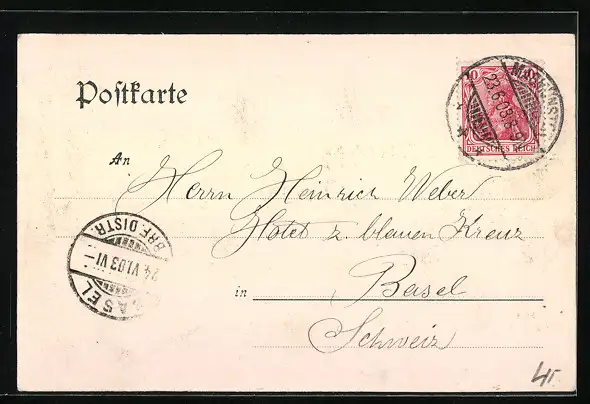 Postkarte
10
DEUTSCHES REICH
23.6.03.
An
Herrn Heinrich Weber
Hotel z blauen Kreuz
BRF. DISTR.
24.VI.03 VI-
BASEL
in Basel
Schweiz